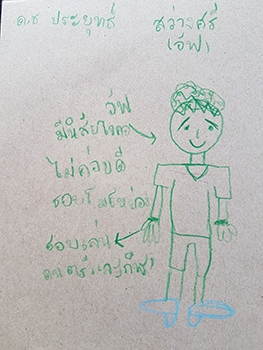 ด.ช ประยุทธ์ สว่างศรี
(อัฟ)
อัฟ
มีนิสัย
ไม่ค่อยดี
ชอบโมโห
ชอบเล่น
ดนตรีและกีฬา